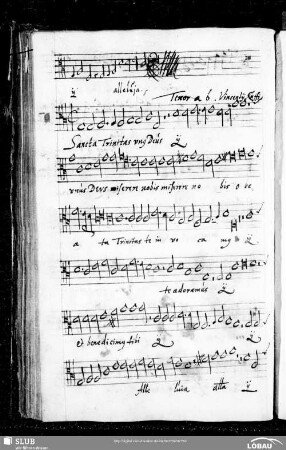 alleluja
Tenor a 6. Vincentij
Sancta Trinitas unus Deus
unus Deus miserere nobis miserere no bis o be
a ta Trinitas te in vo ca mus
te adoramus
et benedicimus tibi
Alle luia alla
SLUB
LÖBAU